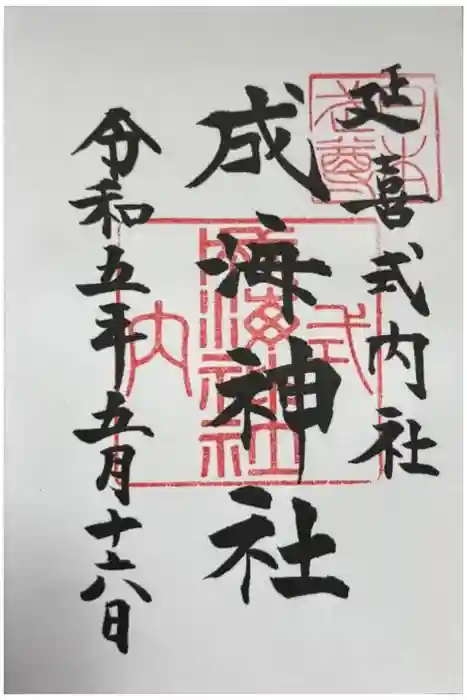 延喜式内社
成海神社
令和五年五月十六日
式
成海神社
内